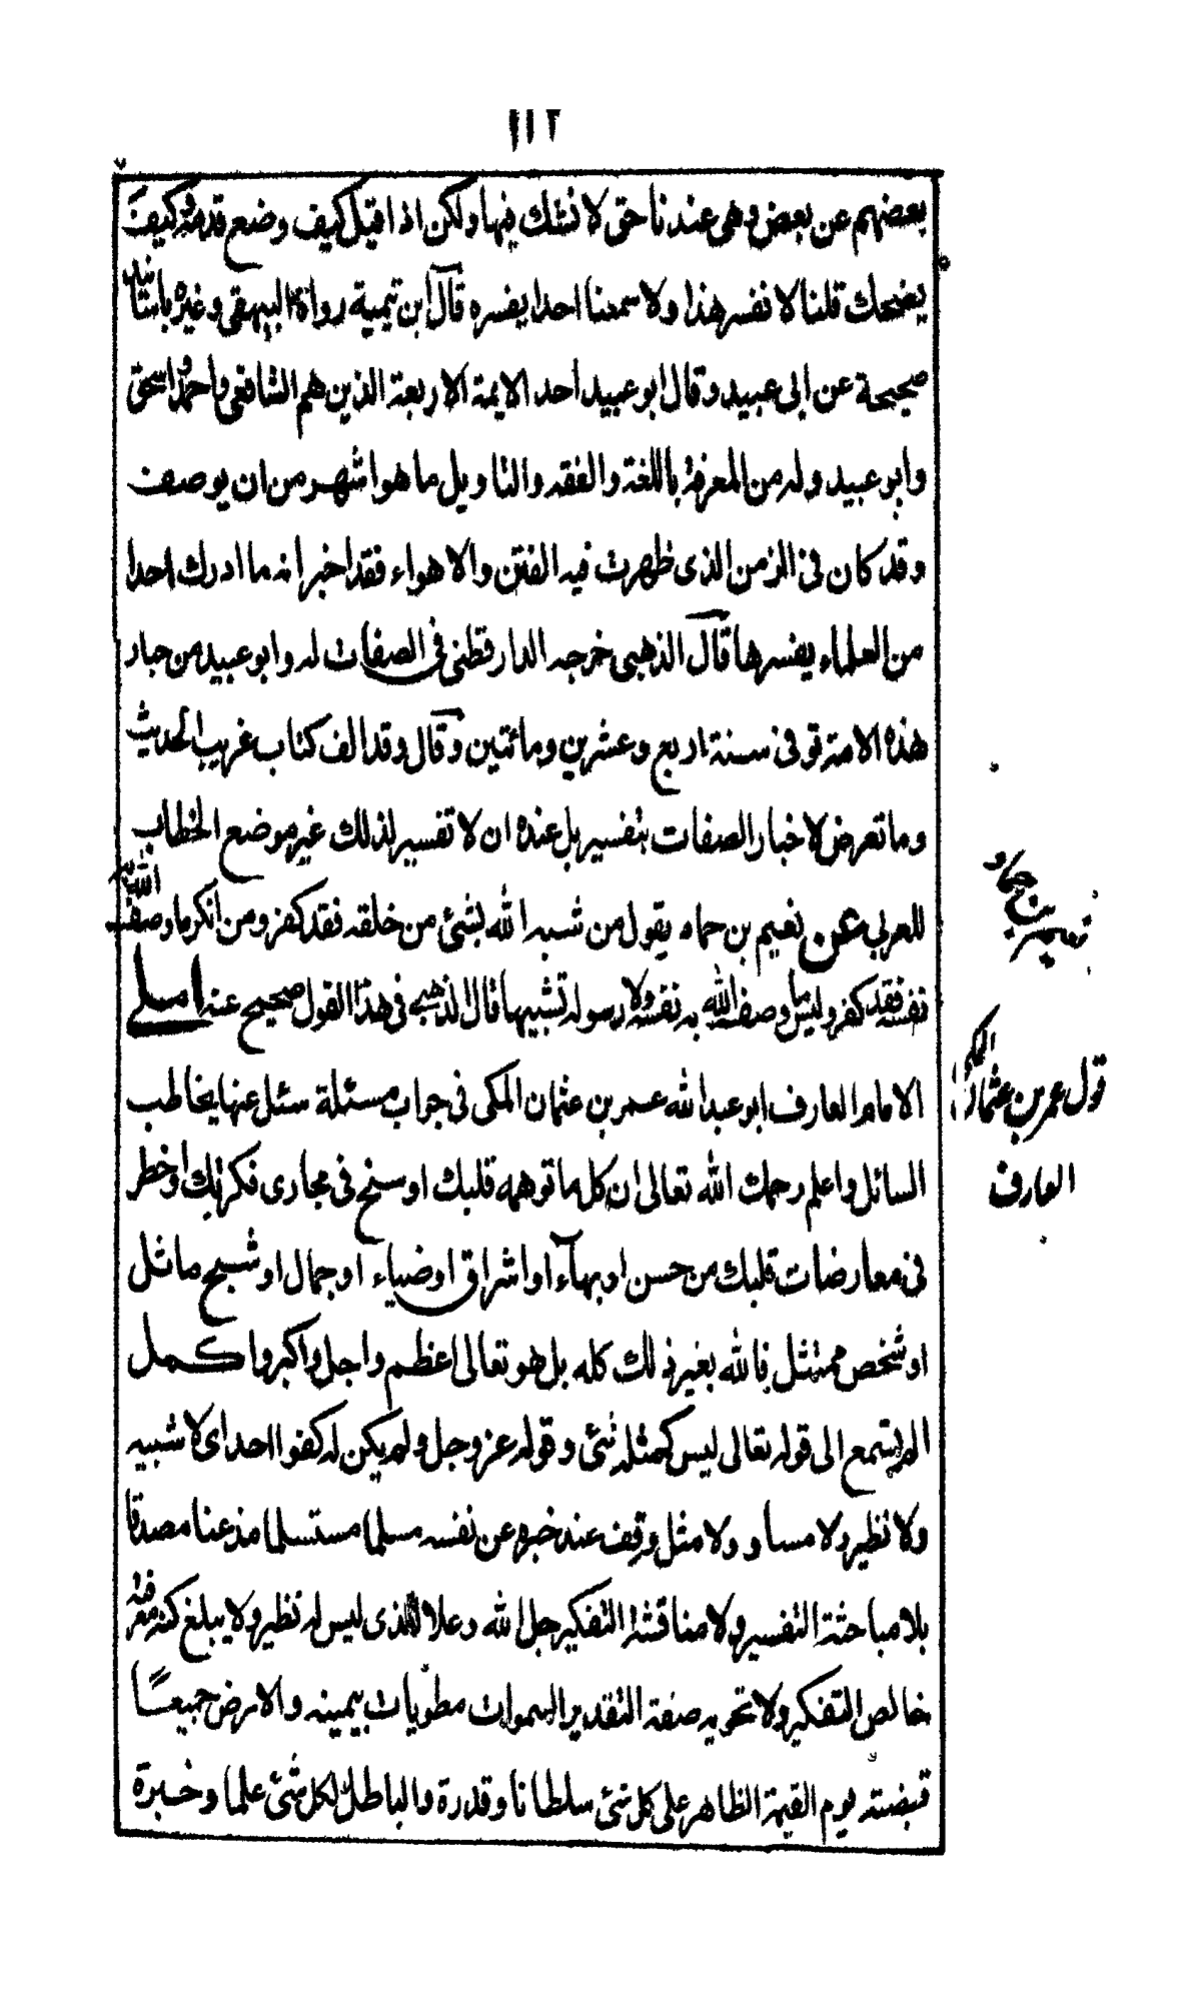 ١١٢
بعضهم عن بعض وهى عندنا حق لا نشك فيها ولكن اذا قيل كيف وضع قدمه وكيف
يضحك قلنا لا نفسر هذا ولا سمعنا احدا يفسره قال ابن تيمية رواه البيهقى وغيره باسانيد
صحيحة عن ابى عبيد وقال ابو عبيد احد الايمة الاربعة الذين هم الشافعى واحمد واسحق
وابو عبيد وله من المعرفة باللغة والفقه والتاويل ما هو اشهر من ان يوصف
وقد كان فى الزمن الذى ظهرت فيه الفتن والاهواء فقد اخبر انه ما ادرك احدا
من العلماء يفسرها قال الذهبى خرجه الدارقطنى فى الصفات له وابو عبيد من حبار
هذه الامة توفى سنة اربع وعشرين ومائتين وقال وقد الف كتاب غريب الحديث
وما تعرض لاخبار الصفات بتفسير بل عنده ان لا تفسير لذلك غير موضع الخطاب
للعربي عن نعيم بن حماه يقول من شبه الله بشئ من خلقه فقد كفر ومن انكر ما وصف الله به
نفسه فقد كفر وليس ما وصف الله به نفسه ولا رسوله تشبيها قال الذهبى فى هذا القول صحيح عنه املى
الامام العارف ابو عبد الله عمر بن عثمان المكى فى جواب مسئلة سئل عنها يخاطب
السائل واعلم رحمك الله تعالى ان كل ما توهمه قلبك او سنح فى مجارى فكرتك او خطر
فى معارضات قلبك من حسن او بهاء او اشراق او ضياء او جمال او شبح ماثل
او شخص ممتثل فالله بغير ذلك كله بل هو تعالى اعظم واجل واكبر واكمل
الم تسمع الى قوله تعالى ليس كمثله شئ وقوله عز وجل ولم يكن له كفوا احد اى لا شبيه
ولا نظير ولا مساو ولا مثل وقف عند خبره عن نفسه مسلما مستسلما مذعنا مصدقا
بلا مباحثة التفسير ولا مناقشة التفكير جل الله وعلا الذى ليس له نظير ولا يبلغ كنه معرفته
خالص التفكير ولا تحويه صفة التقدير السموات مطويات بيمينه والارض جميعا
قبضته يوم القيمة الظاهر على كل شئ سلطانا وقدرة والباطن لكل شئ علما وخبرة
نعيم بن حماد
قول عمر بن عثمان المكى
العارف